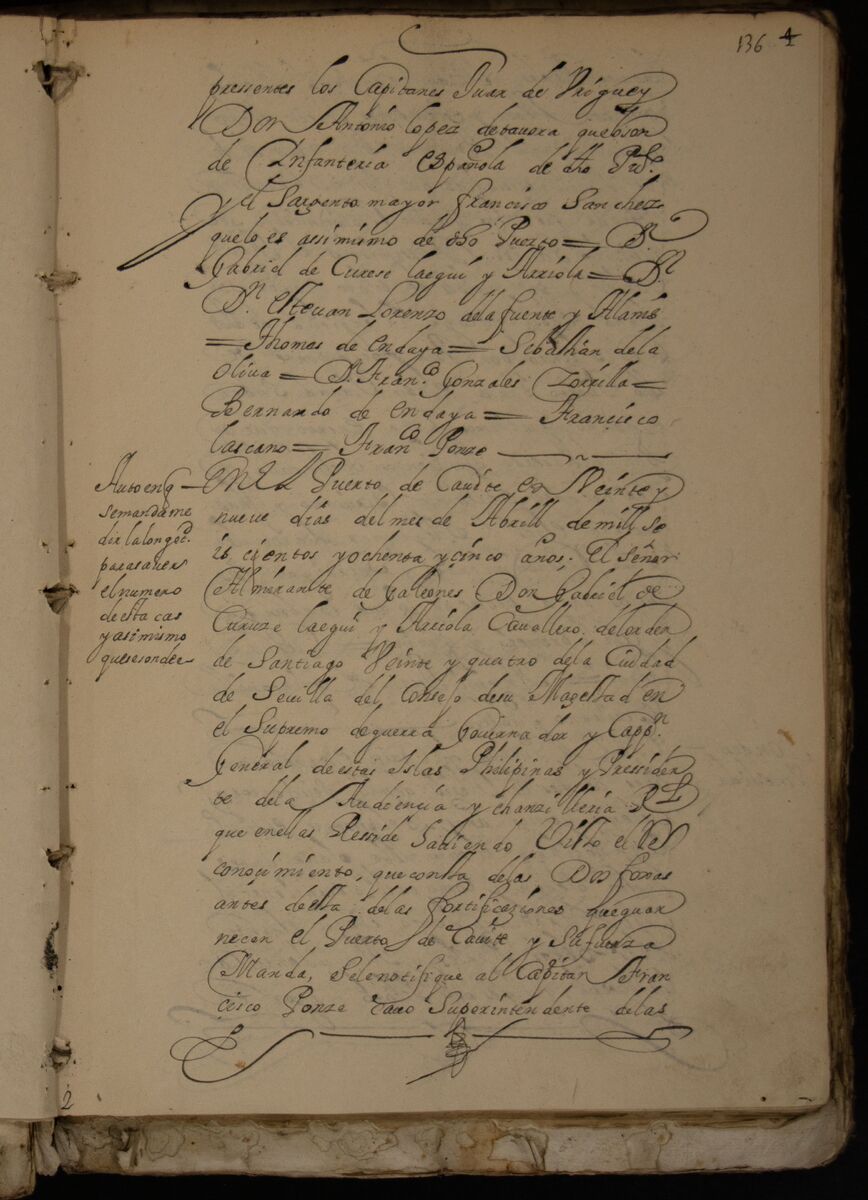 136 4
pressentes los Capitanes Juan de Vriguey
Don Antonio lopez detauora quebson
de Infanteria española de dho Pto.
y el Sargento mayor francisco Sanchez
quelo es assimismo de dho Puerto = Dn
Gabriel de Curuse laegui y Arriola = Dn
Dn esteuan Lorenzo dela fuente y Alanis
= Thomas de endaya = Sebasthian dela
oliva = D. Franco. Gonzales Zorrilla =
Bernardo de endaya = Francisco
lascano = Franco Ponze
Auto en q
semandame
dir lalongd.
parasauer
el numero
deestacas
y asimismo
En el Puerto de Cauite en Veinte y
nueue dias del mes de Abrill de mill se
is cientos y ochenta y cinco años. El señor
Almirante de Galeones Don Gabriel de
Curuze laegui y Arriola Cauallero del orden
de Santiago Veinte y quatro dela Ciudad
de Seuilla del Consejo desu Magestad en
el Supremo deguerra Gouernador y Cappn.
General de estas Islas Philipinas y Pressiden
te dela Audiencia y chanzilleria Rl
que enellas Resside hauiendo Visto el Re
conocimiento, queconsta delas Dos foxas
antes desta delas fortificaziones queguar
necen el Puerto de Cauite y Sufuerza
Manda, Selenotifique al Capitan Fran
cisco Ponze Superintendente delas
2